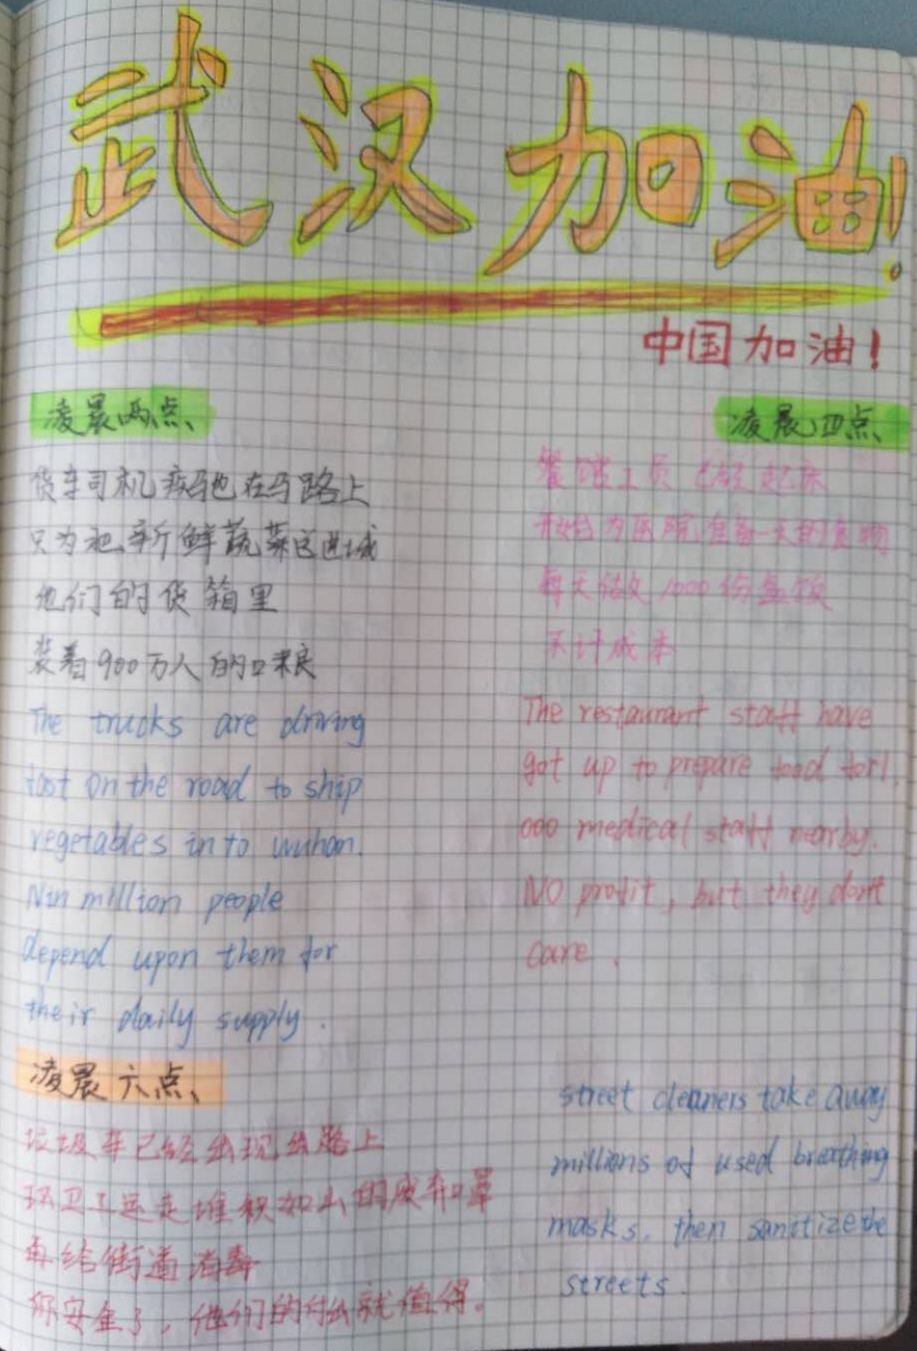 武汉加油!
中国加油!
凌晨两点、
货车司机疾驰在马路上
只为把新鲜蔬菜送进城
他们的货箱里
装着900万人的口粮
The trucks are driving
fast on the road to ship
vegetables in to wuhan.
Nin million people
depend upon them for
their daily supply.
凌晨四点、
餐馆工员已经起床
开始为医院准备一天的食物
每天做 1000份盒饭
不计成本
The restaurant staff have
got up to prepare food for1,
000 medical staff nearby.
NO profit, but they don't
care.
凌晨六点、
垃圾车已经出现在路上
环卫工运走堆积如山的废弃口罩
再给街道消毒
你安全了,他们的付出就值得。
street cleaners take away
millions of used breathing
masks, then sanitize the
streets.